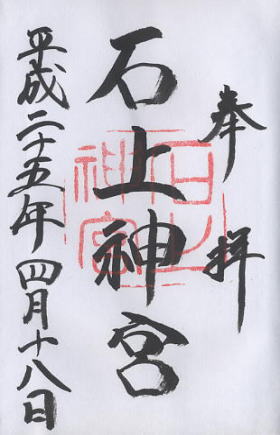 奉拝
石上神宮
平成二十五年四月十八日
石上
神宮